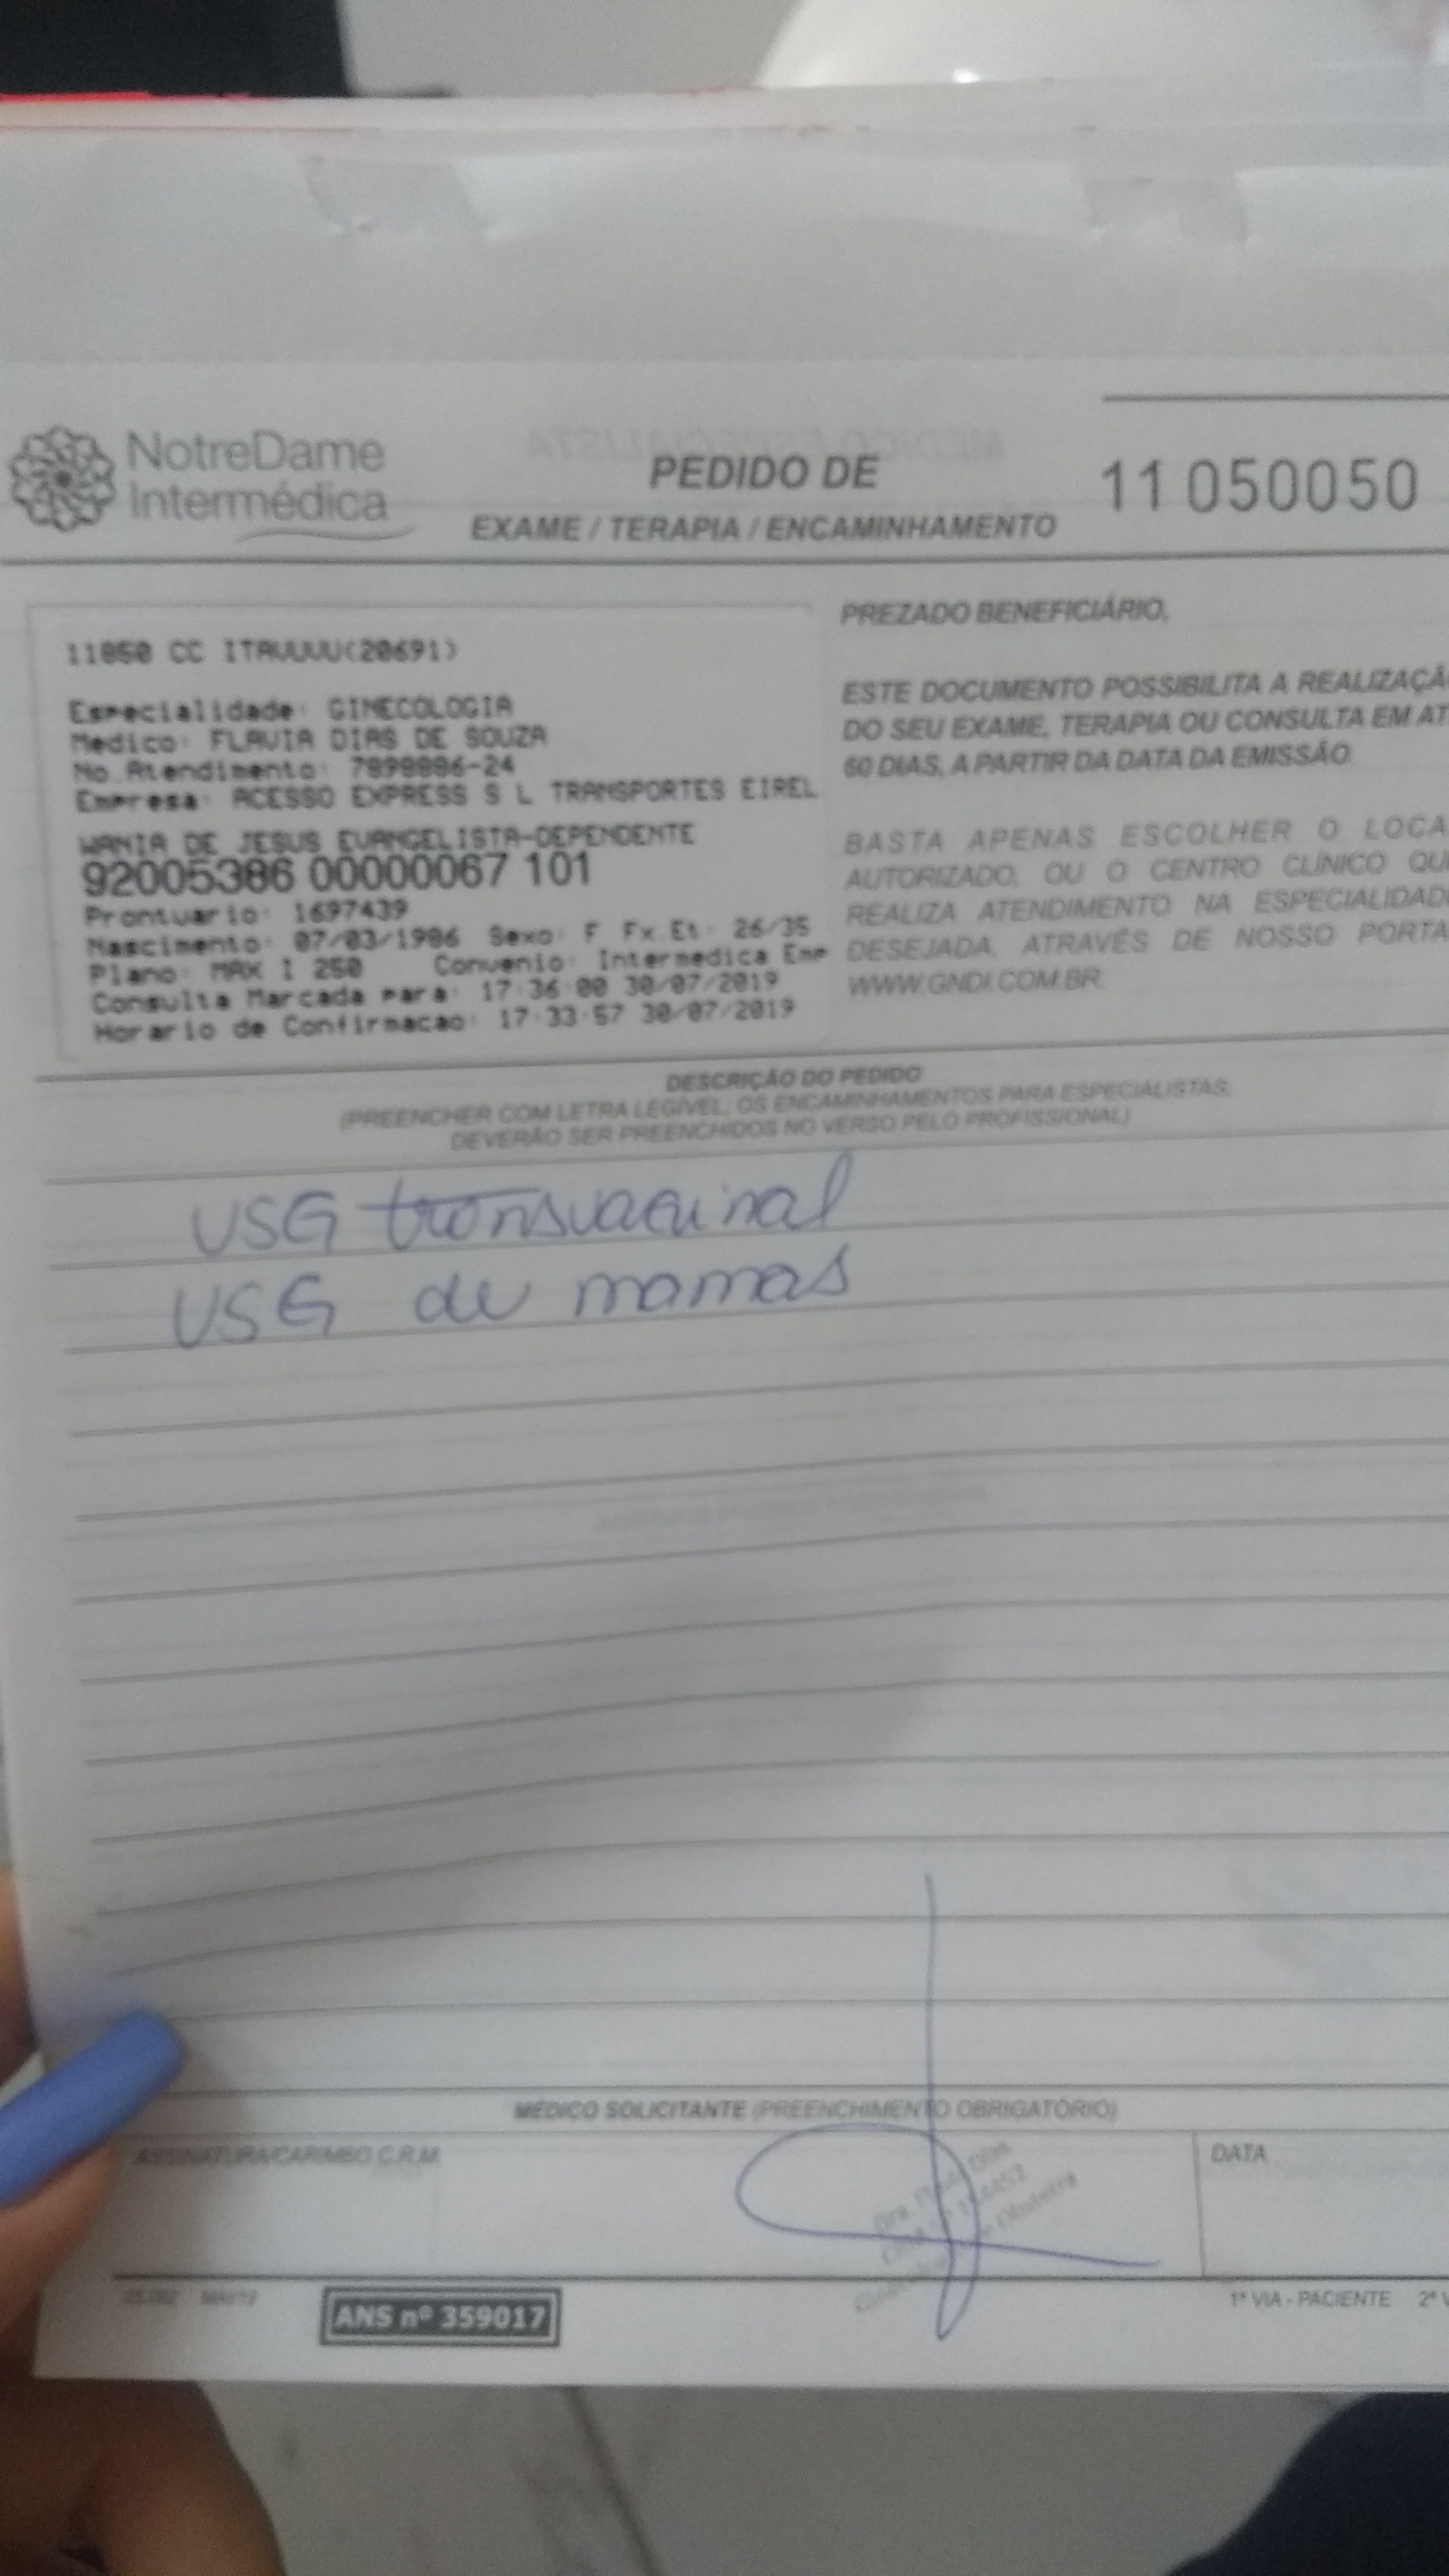 NotreDame
Intermédica
PEDIDO DE
EXAME / TERAPIA / ENCAMINHAMENTO
11 050050
11050 CC ITAVUVU(20691)
Especialidade: GINECOLOGIA
Medico: FLAVIA DIAS DE SOUZA
No.Atendimento: 7898886-24
Empresa: ACESSO EXPRESS S L TRANSPORTES EIREL
WANIA DE JESUS EVANGELISTA-DEPENDENTE
92005386 00000067 101
Prontuario: 1697439
Nascimento: 07/03/1986 Sexo: F Fx.Et: 26/35
Plano: MAX I 250 Convenio: Intermedica Emp
Consulta Marcada para: 17:36:00 30/07/2019
Horario de Confirmacao: 17:33:57 30/07/2019
PREZADO BENEFICIÁRIO,
ESTE DOCUMENTO POSSIBILITA A REALIZAÇÃ
DO SEU EXAME, TERAPIA OU CONSULTA EM AT
60 DIAS, A PARTIR DA DATA DA EMISSÃO.
BASTA APENAS ESCOLHER O LOCA
AUTORIZADO, OU O CENTRO CLÍNICO QU
REALIZA ATENDIMENTO NA ESPECIALIDAD
DESEJADA, ATRAVÉS DE NOSSO PORTA
WWW.GNDI.COM.BR.
DESCRIÇÃO DO PEDIDO
(PREENCHER COM LETRA LEGÍVEL; OS ENCAMINHAMENTOS PARA ESPECIALISTAS,
DEVERÃO SER PREENCHIDOS NO VERSO PELO PROFISSIONAL)
USG transvaginal
USG de mamas
MÉDICO SOLICITANTE (PREENCHIMENTO OBRIGATÓRIO)
ASSINATURA/CARIMBO C.R.M.
DATA
Dra. Flavia Dias
Obstetra
ANS nº 359017
1ª VIA - PACIENTE 2ª V